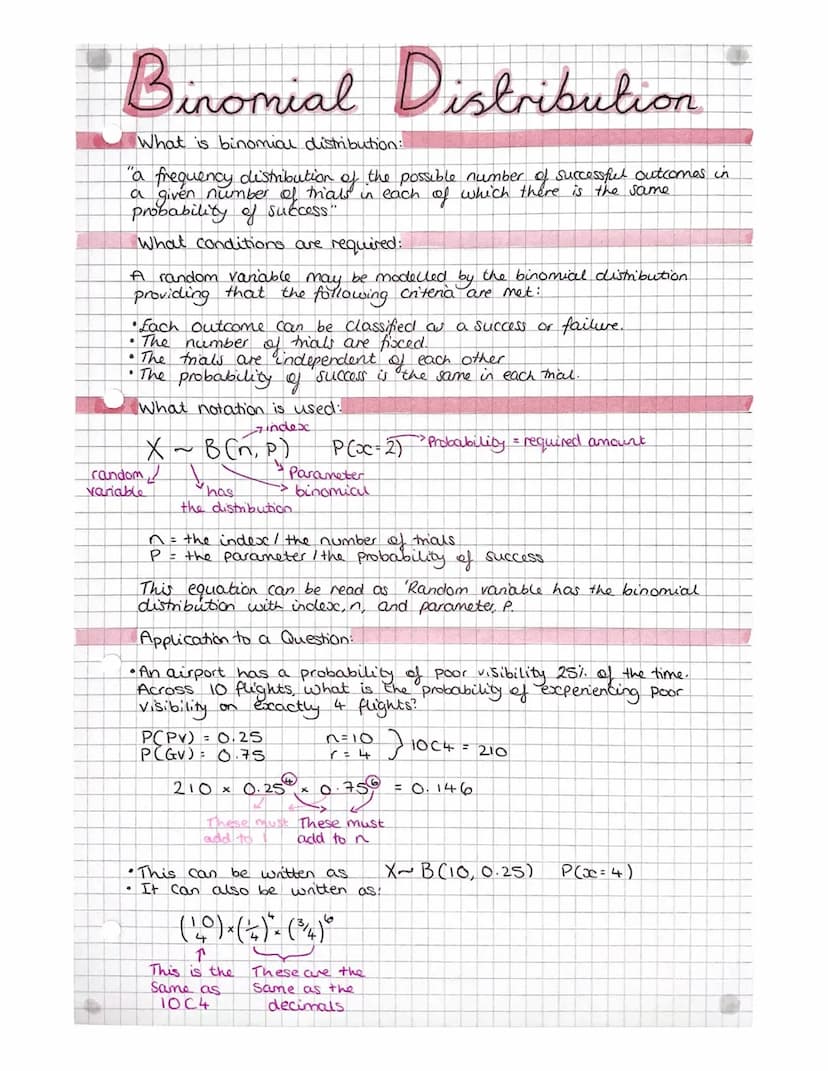 Binomial Distribution
What is binomial distribution:
"a frequency distribution of the possible number of successful outcomes in
a given number of trials in each of which there is the same
probability of success"
What conditions are required:
A random variable may be modelled by the binomial distribution
providing that the following criteria are met:
• Each outcome can be classified as a success or failure.
• The number of trials are fixed.
• The trials are independent of each other
• The probability of success is the same in each trial.
What notation is used:
index
X ~ B(n, p) P(x=2) Probability = required amount
random variable
has the distribution
Parameter
binomial
n = the index / the number of trials
P = the parameter / the probability of success
This equation can be read as 'Random variable has the binomial
distribution with index, n, and parameter, P.
Application to a Question:
• An airport has a probability of poor visibility 25% of the time.
Across 10 flights, what is the probability of experiencing poor
visibility on exactly 4 flights?
P(PV) = 0.25 n=10
P(GV) = 0.75 r=4 } 10C4 = 210
210 × 0.25⁴ × 0.75⁶ = 0.146
These must These must
add to 1 add to n
• This can be written as X~B(10, 0.25) P(x=4)
• It can also be written as:
(10 4) × (1/4)⁴ × (3/4)⁶
This is the These are the
same as same as the
10C4 decimals